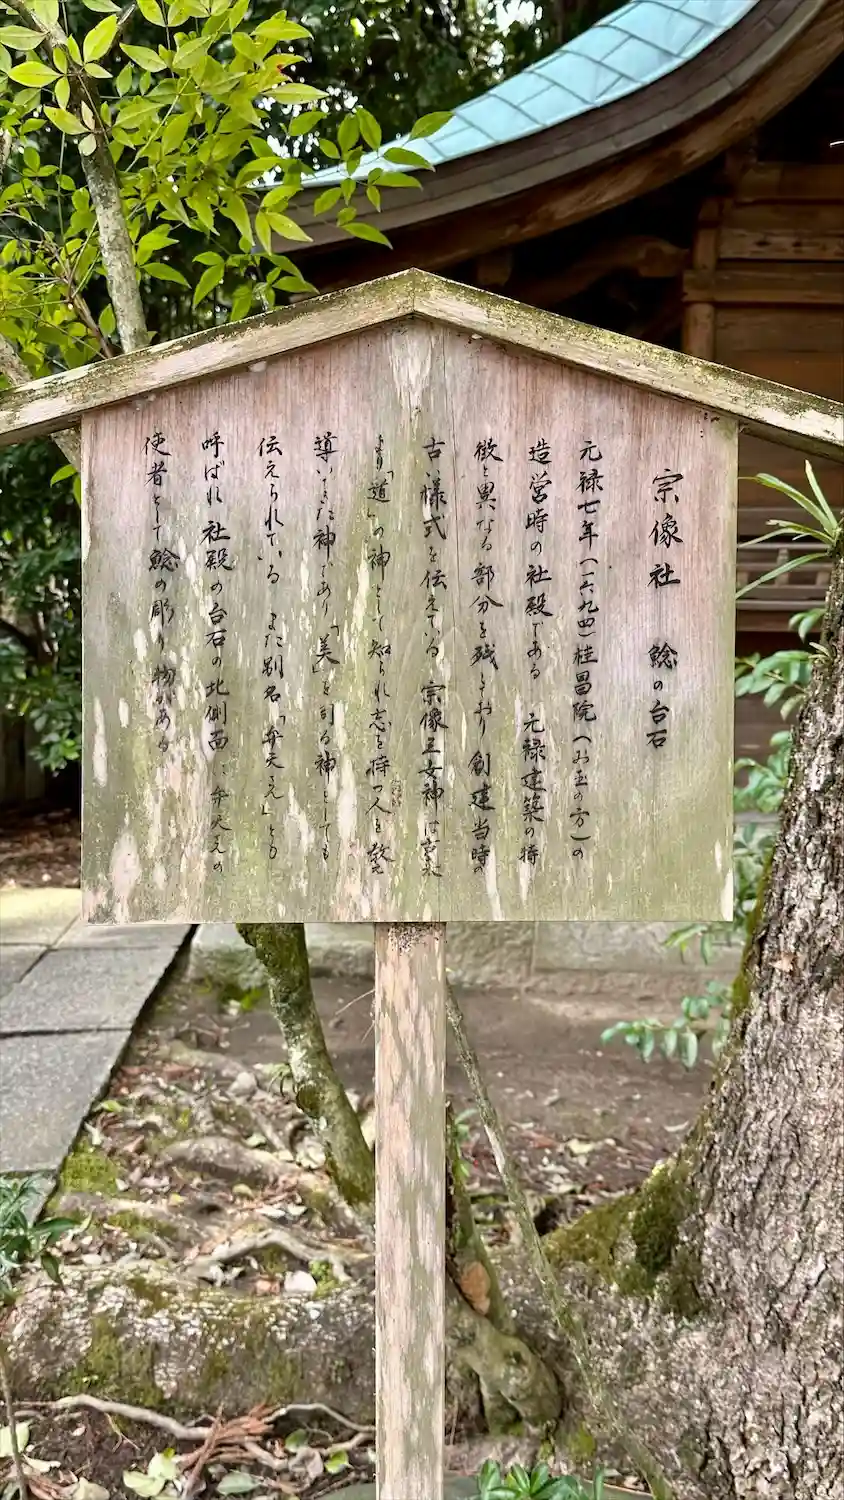 宗像社 鯰の台石
元禄七年(一六九四)桂昌院(お玉の方)の
造営時の社殿である 元禄建築の特
徴と異なる部分を残しており創建当時の
古い様式を伝えている 宗像三女神は古来
より「道」の神として知られ志を持つ人を教え
導いてきた神であり「美」を司る神としても
伝えられている また別名「弁天さん」とも
呼ばれ 社殿の台石の北側面に弁天さんの
使者として鯰の彫り物がある